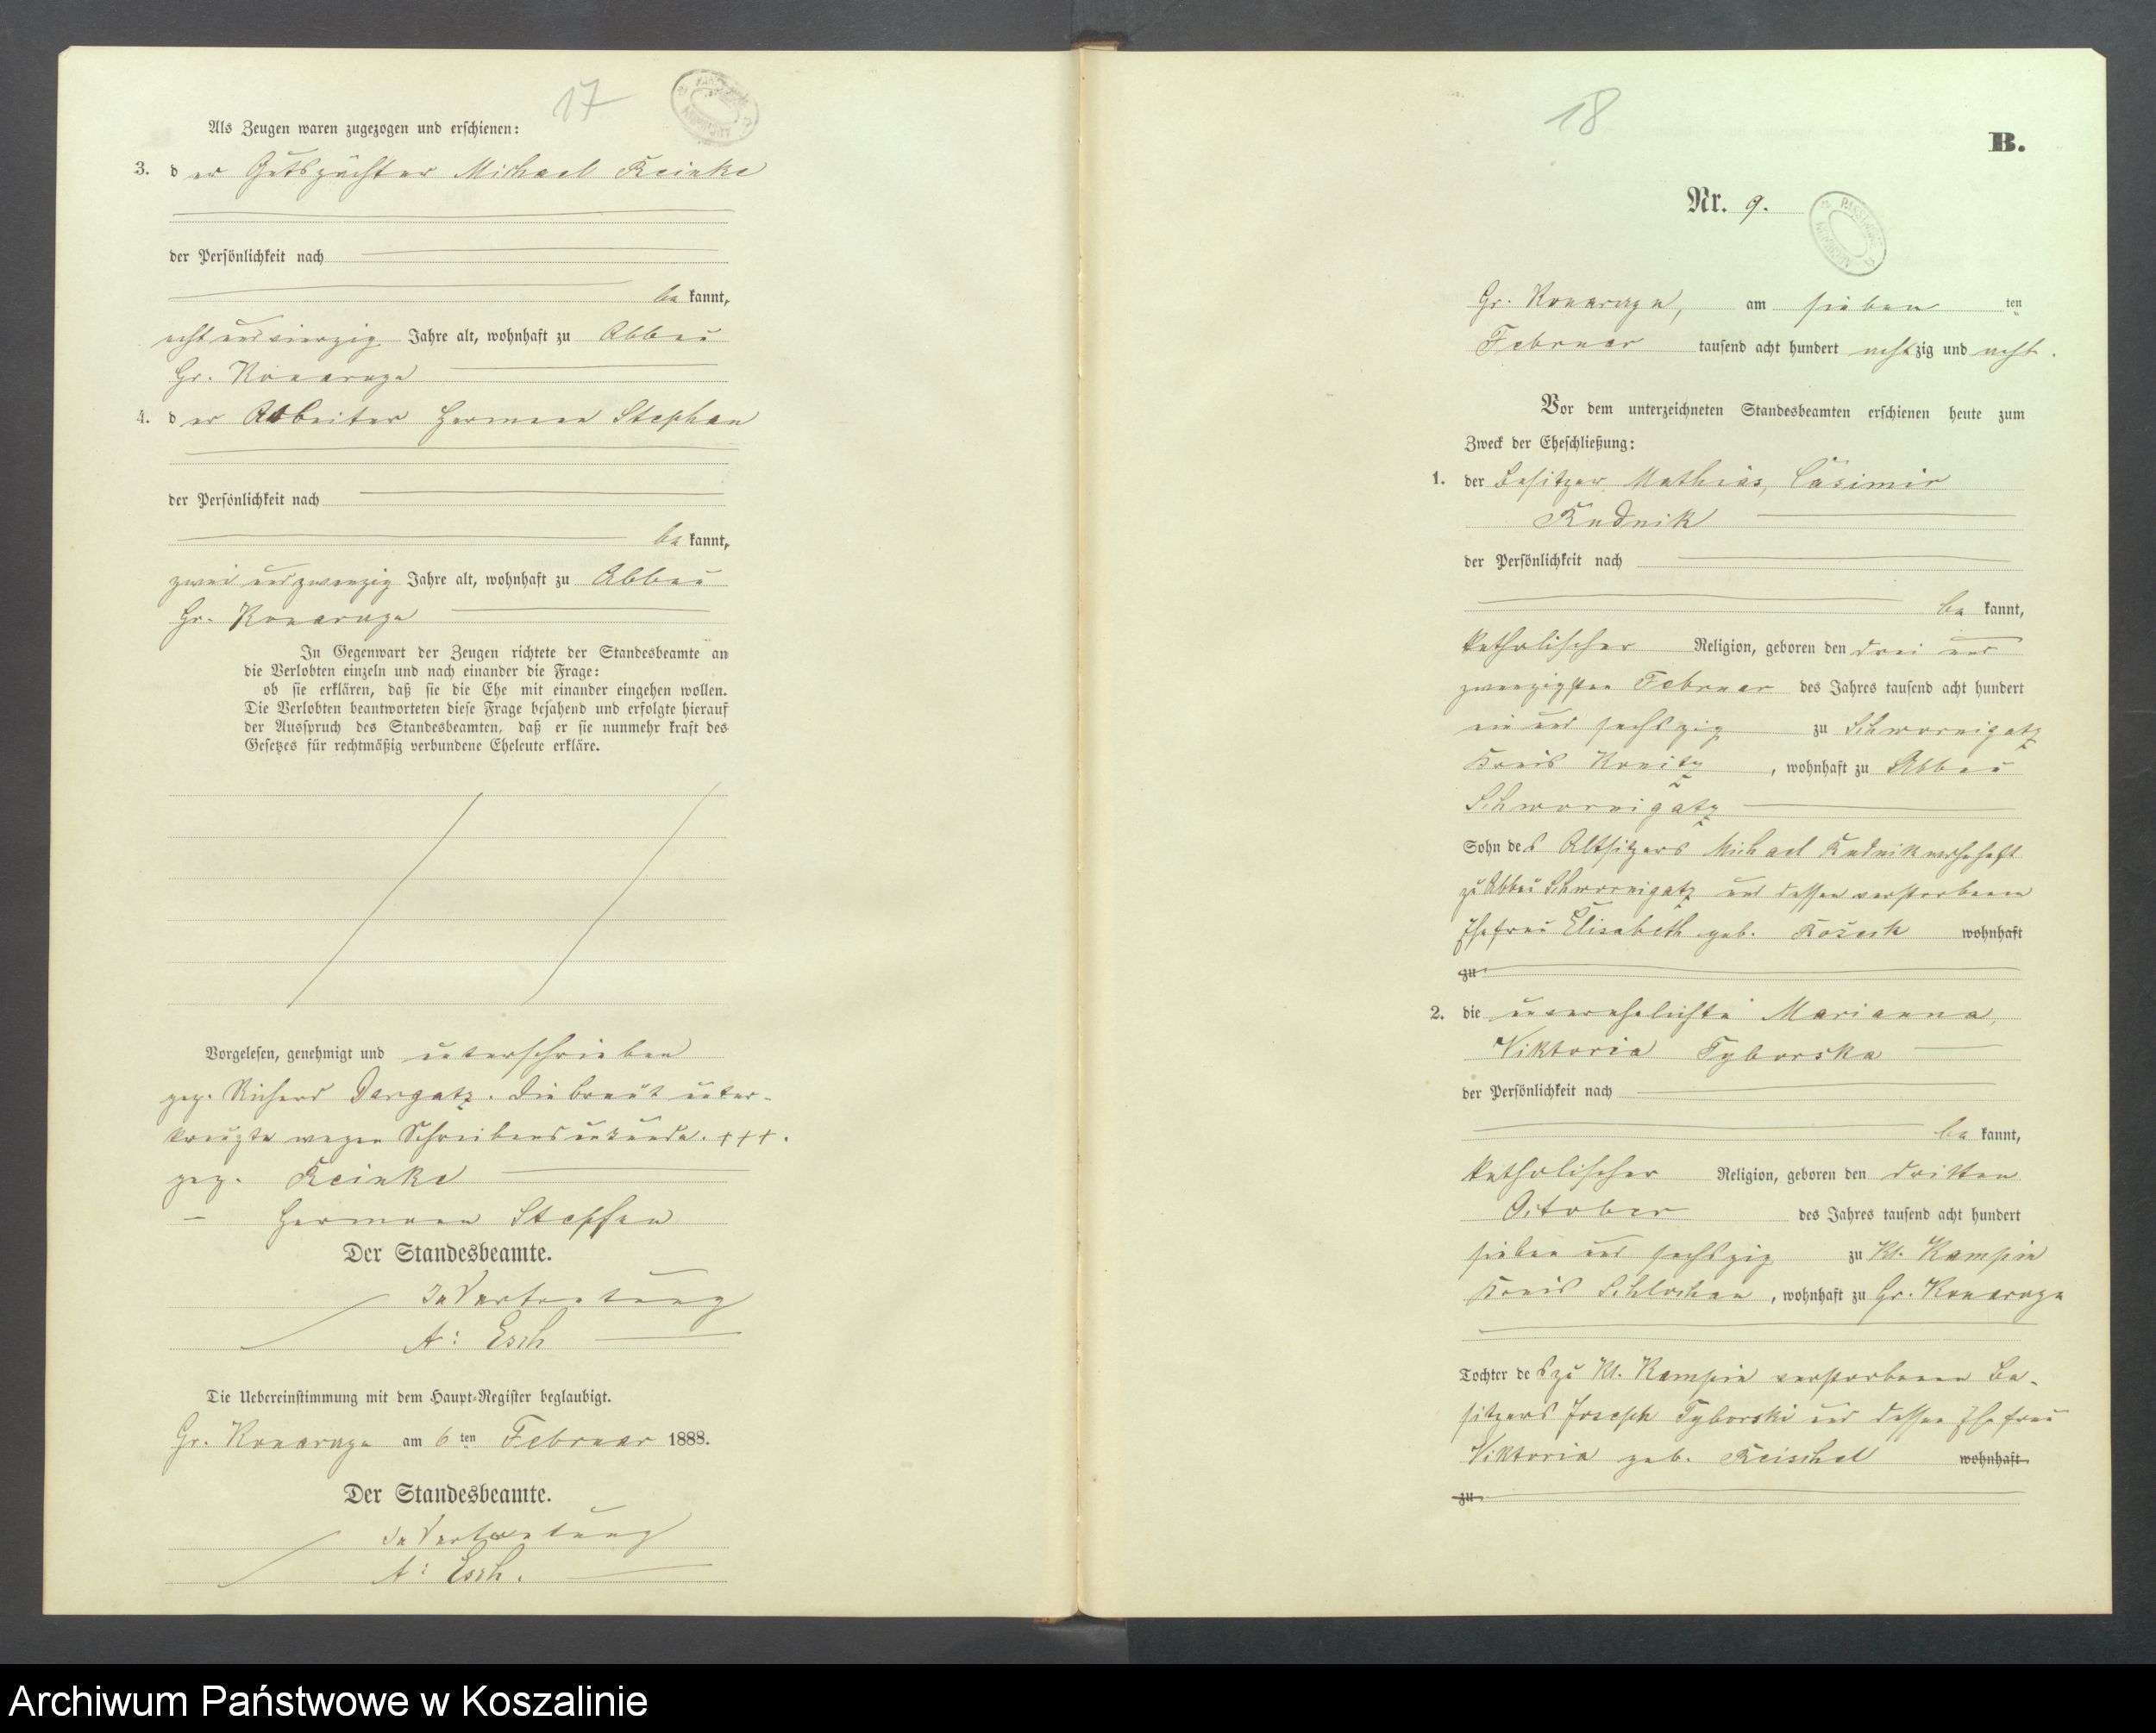 17
Als Zeugen waren zugezogen und erschienen:
3. der Gutspächter Michael Reinke
der Persönlichkeit nach
bekannt,
acht und vierzig Jahre alt, wohnhaft zu Abbau
Gr. Konarzyn
4. der Arbeiter Hermann Stephan
der Persönlichkeit nach
bekannt,
zwei und zwanzig Jahre alt, wohnhaft zu Abbau
Gr. Konarzyn
In Gegenwart der Zeugen richtete der Standesbeamte an
die Verlobten einzeln und nach einander die Frage:
ob sie erklären, daß sie die Ehe mit einander eingehen wollen.
Die Verlobten beantworteten diese Frage bejahend und erfolgte hierauf
der Ausspruch des Standesbeamten, daß er sie nunmehr kraft des
Gesetzes für rechtmäßig verbundene Eheleute erkläre.
Vorgelesen, genehmigt und unterschrieben
gez. Richard Dargatz. Die Braut unter-
kreuzte wegen Schreibensunkunde. +++.
gez. Reinke
— Hermann Stephan
Der Standesbeamte.
In Vertretung
A: Esch
Die Uebereinstimmung mit dem Haupt-Register beglaubigt.
Gr. Konarzyn am 6ten Februar 1888.
Der Standesbeamte.
In Vertretung
A: Esch.
18
B.
Nr. 9.
Gr. Konarzyn, am sieben ten
Februar tausend acht hundert achtzig und acht.
Vor dem unterzeichneten Standesbeamten erschienen heute zum
Zweck der Eheschließung:
1. der Besitzer Mathias, Casimir
Rudnik
der Persönlichkeit nach
bekannt,
katholischer Religion, geboren den drei und
zwanzigsten Februar des Jahres tausend acht hundert
ein und sechszig zu Schwornigatz
Kreis Konitz, wohnhaft zu Abbau
Schwornigatz
Sohn des Altsitzers Michael Rudnik wohnhaft
zu Abbau Schwornigatz und dessen verstorbenen
Ehefrau Elisabeth geb. wohnhaft
zu
2. die unverehelichte Marianna,
Viktoria Tyborska
der Persönlichkeit nach
bekannt,
katholischer Religion, geboren den dritten
October des Jahres tausend acht hundert
sieben und sechszig zu Kl. Kampin
Kreis Schlochau, wohnhaft zu Gr. Konarzyn
Tochter des zu Kl. Kampin verstorbenen Be-
sitzers Joseph Tyborski und dessen Ehefrau
Viktoria geb. Reischel wohnhaft
zu
Archiwum Państwowe w Koszalinie